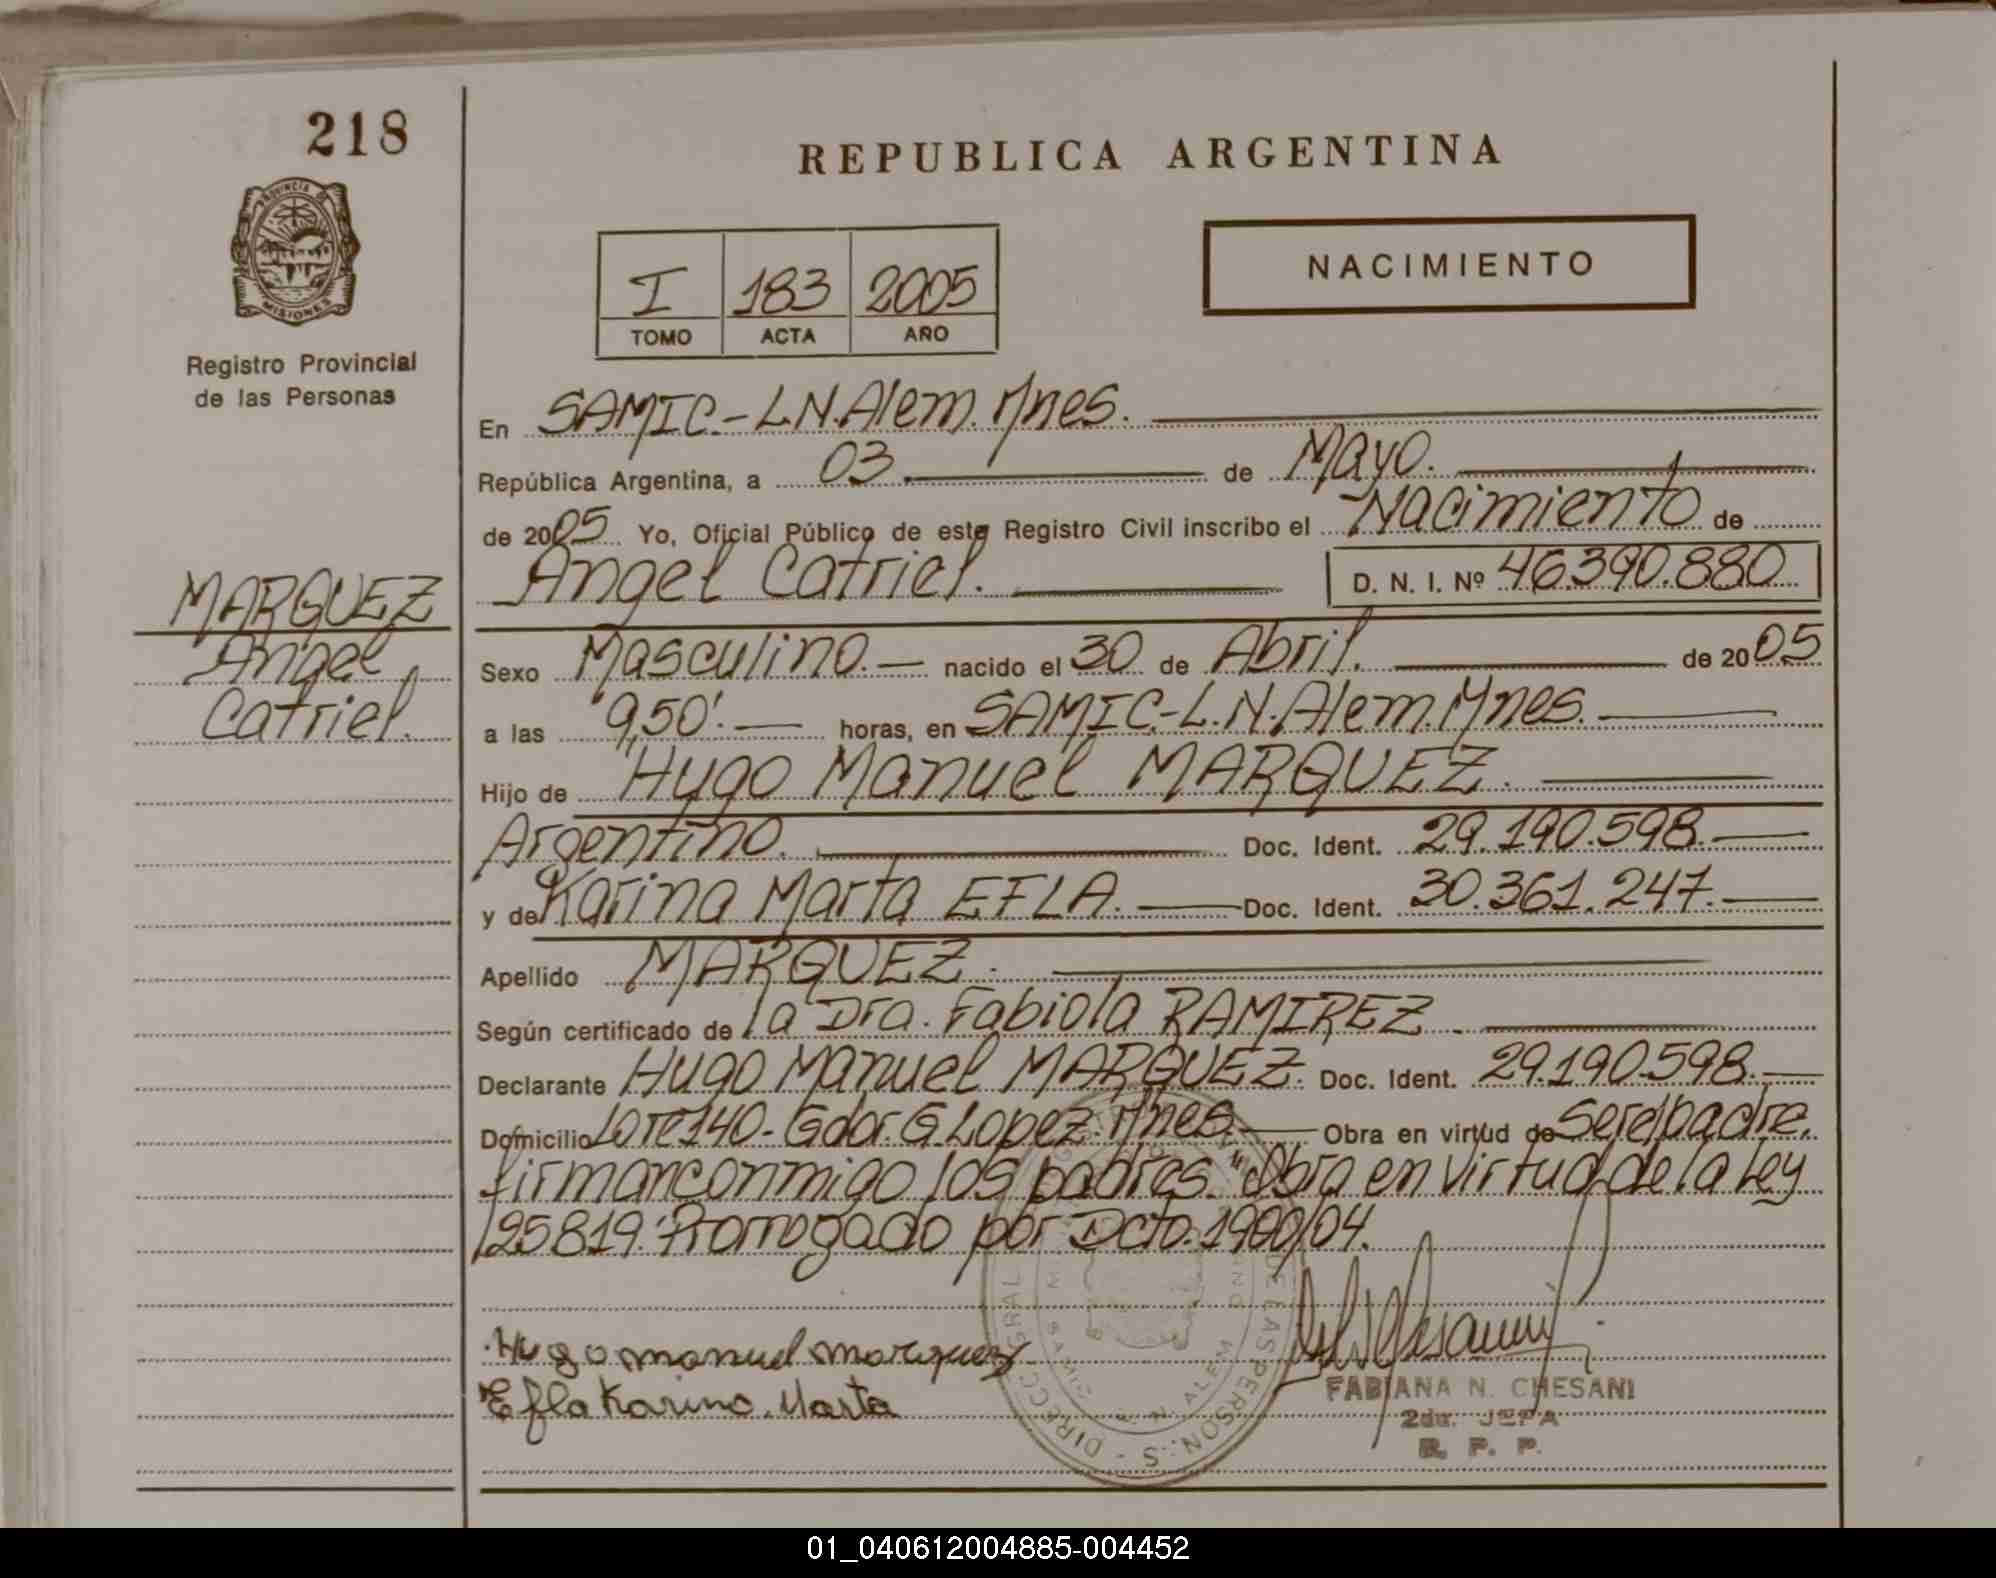 218
REPUBLICA ARGENTINA
PROVINCIA DE
MISIONES
Registro Provincial
de las Personas
I 183 2005
TOMO ACTA AÑO
NACIMIENTO
En SAMIC.-L.N.Alem.Mnes.
República Argentina, a 03 de Mayo.
de 2005 Yo, Oficial Público de este Registro Civil inscribo el Nacimiento de
Angel Catriel. D. N. I. Nº 46.390.880
MARQUEZ
Angel
Catriel.
Sexo Masculino.- nacido el 30 de Abril. de 2005
a las 9,50'.- horas, en SAMIC-L.N.Alem.Mnes.
Hijo de Hugo Manuel MARQUEZ.
Argentino. Doc. Ident. 29.190.598.-
y de Karina Marta EFLA.- Doc. Ident. 30.361.247.-
Apellido MARQUEZ.
Según certificado de la Dra. Fabiola RAMIREZ.
Declarante Hugo Manuel MARQUEZ. Doc. Ident. 29.190.598.-
Domicilio Lote 140- Gdor. G Lopez. Mnes.- Obra en virtud de ser el padre.
firman conmigo los padres. "Obra en virtud de la Ley
25819." Prorrogado por Dcto. 1900/04.
Hugo manuel marquez
Efla Karina. Marta
FABIANA N. CHESANI
2da. JEFA
R. P. P.
01_040612004885-004452